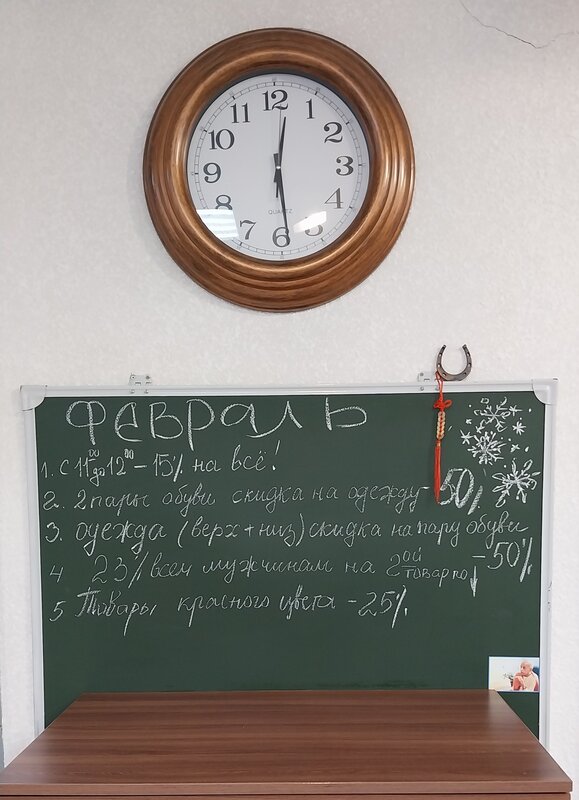 12
1
2
3
4
5
6
7
8
9
10
11
QUARTZ
ФЕВРАЛЬ
1. С 11⁰⁰ до 12⁰⁰ - 15% на всё!
2. 2 пары обуви скидка на одежду 50%
3. одежда (верх + низ) скидка на пару обуви -50%
4 23% всем мужчинам на 2ой товар по ↓
5 Товары красного цвета - 25%